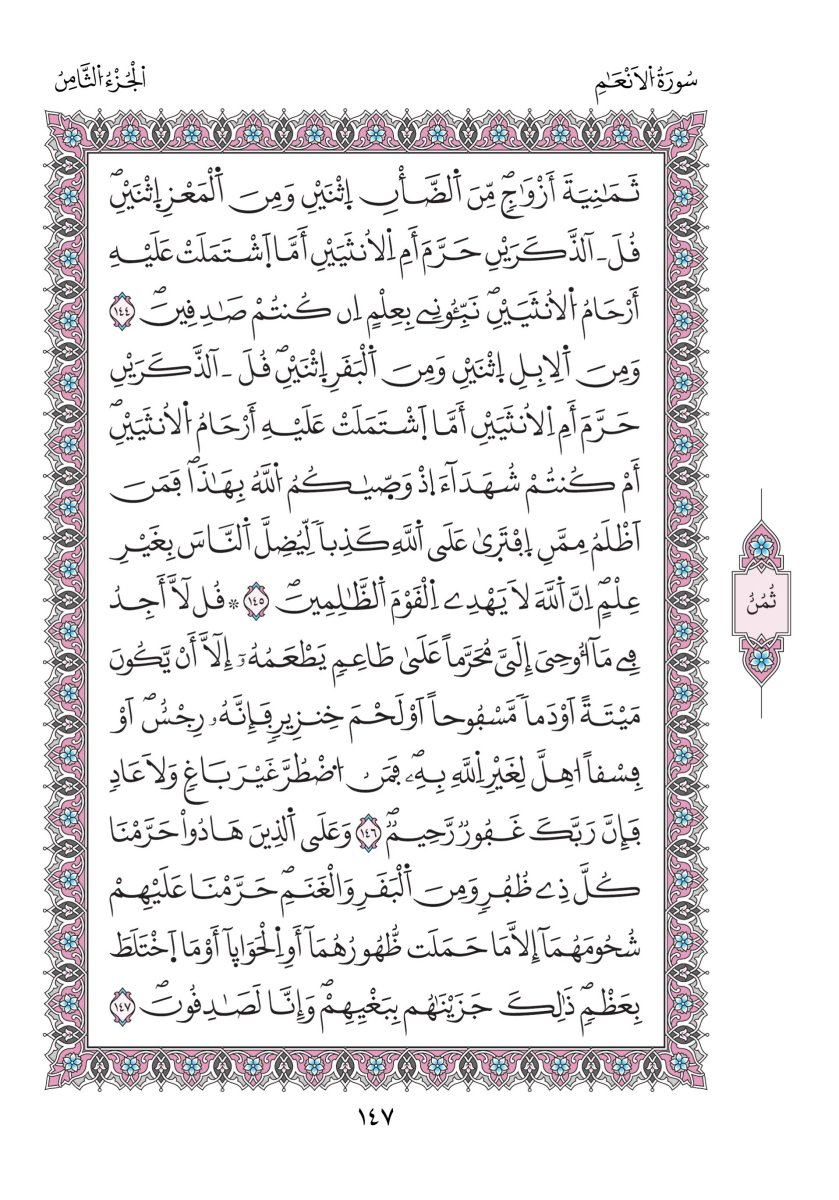 سُورَةُ اُ۬لَانْعَٰمِ
اُ۬لْجُزْءُ اُ۬لثَّامِنُ
ثَمَٰنِيَةَ أَزْوَٰجٖۖ مِّنَ اَ۬لضَّأْنِ اِ۪ثْنَيْنِ وَمِنَ اَ۬لْمَعْزِ اِ۪ثْنَيْنِۖ
قُلَ ـ آلذَّكَرَيْنِ حَرَّمَ أَمِ اِ۬لُانثَيَيْنِ أَمَّا اَ۪شْتَمَلَتْ عَلَيْهِ
أَرْحَامُ اُ۬لُانثَيَيْنِۖ نَبِّـُٔونِے بِعِلْمٍ اِن كُنتُمْ صَٰدِقِينَۖ ١٤٤
وَمِنَ اَ۬لِابِلِ اِ۪ثْنَيْنِ وَمِنَ اَ۬لْبَقَرِ اِ۪ثْنَيْنِۖ قُلَ ـ آلذَّكَرَيْنِ
حَرَّمَ أَمِ اِ۬لُانثَيَيْنِ أَمَّا اَ۪شْتَمَلَتْ عَلَيْهِ أَرْحَامُ اُ۬لُانثَيَيْنِۖ
أَمْ كُنتُمْ شُهَدَآءَ اِذْ وَصّ۪يٰكُمُ اُ۬للَّهُ بِهَٰذَاۖ فَمَنَ
اَظْلَمُ مِمَّنِ اِ۪فْتَرَىٰ عَلَى اَ۬للَّهِ كَذِباٗ لِّيُضِلَّ اَ۬لنَّاسَ بِغَيْرِ
عِلْمٍۖ اِنَّ اَ۬للَّهَ لَا يَهْدِے اِ۬لْقَوْمَ اَ۬لظَّٰلِمِينَۖ ١٤٥ ۞ قُل لَّآ أَجِدُ
فِے مَآ أُوحِيَ إِلَيَّ مُحَرَّماً عَلَىٰ طَاعِمٖ يَطْعَمُهُۥٓ إِلَّآ أَنْ يَّكُونَ
مَيْتَةً اَوْ دَماٗ مَّسْفُوحاً اَوْ لَحْمَ خِنزِيرٖ فَإِنَّهُۥ رِجْسٌۖ اَوْ
فِسْقاً اُهِلَّ لِغَيْرِ اِ۬للَّهِ بِهِۦۖ فَمَنُ اُ۟ضْطُرَّ غَيْرَ بَاغٖ وَلَا عَادٖ
فَإِنَّ رَبَّكَ غَفُورٞ رَّحِيمٞۖ ١٤٦ وَعَلَى اَ۬لذِينَ هَادُواْ حَرَّمْنَا
كُلَّ ذِے ظُفُرٖ وَمِنَ اَ۬لْبَقَرِ وَالْغَنَمِۖ حَرَّمْنَا عَلَيْهِمْ
شُحُومَهُمَآ إِلَّا مَا حَمَلَت ظُّهُورُهُمَآ أَوِ اِ۬لْحَوَايَآ أَوْ مَا اَ۪خْتَلَطَ
بِعَظْمٖۖ ذَٰلِكَ جَزَيْنَٰهُم بِبَغْيِهِمْۖ وَإِنَّا لَصَٰدِقُونَۖ ١٤٧
ثُمُنُ
١٤٧